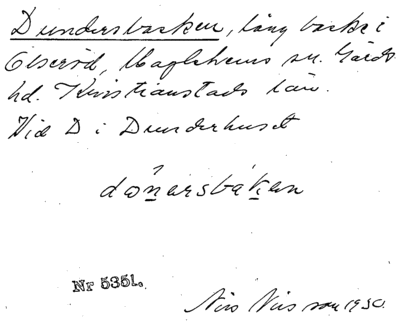 Dundersbacken, lång backe i
Olseröd, Maglehems sn. Gärds
hd. Kristianstads län.
Vid D i Dunderhuset
dånarsbakan
Nr 5351.
Nils Nilsson 1930.